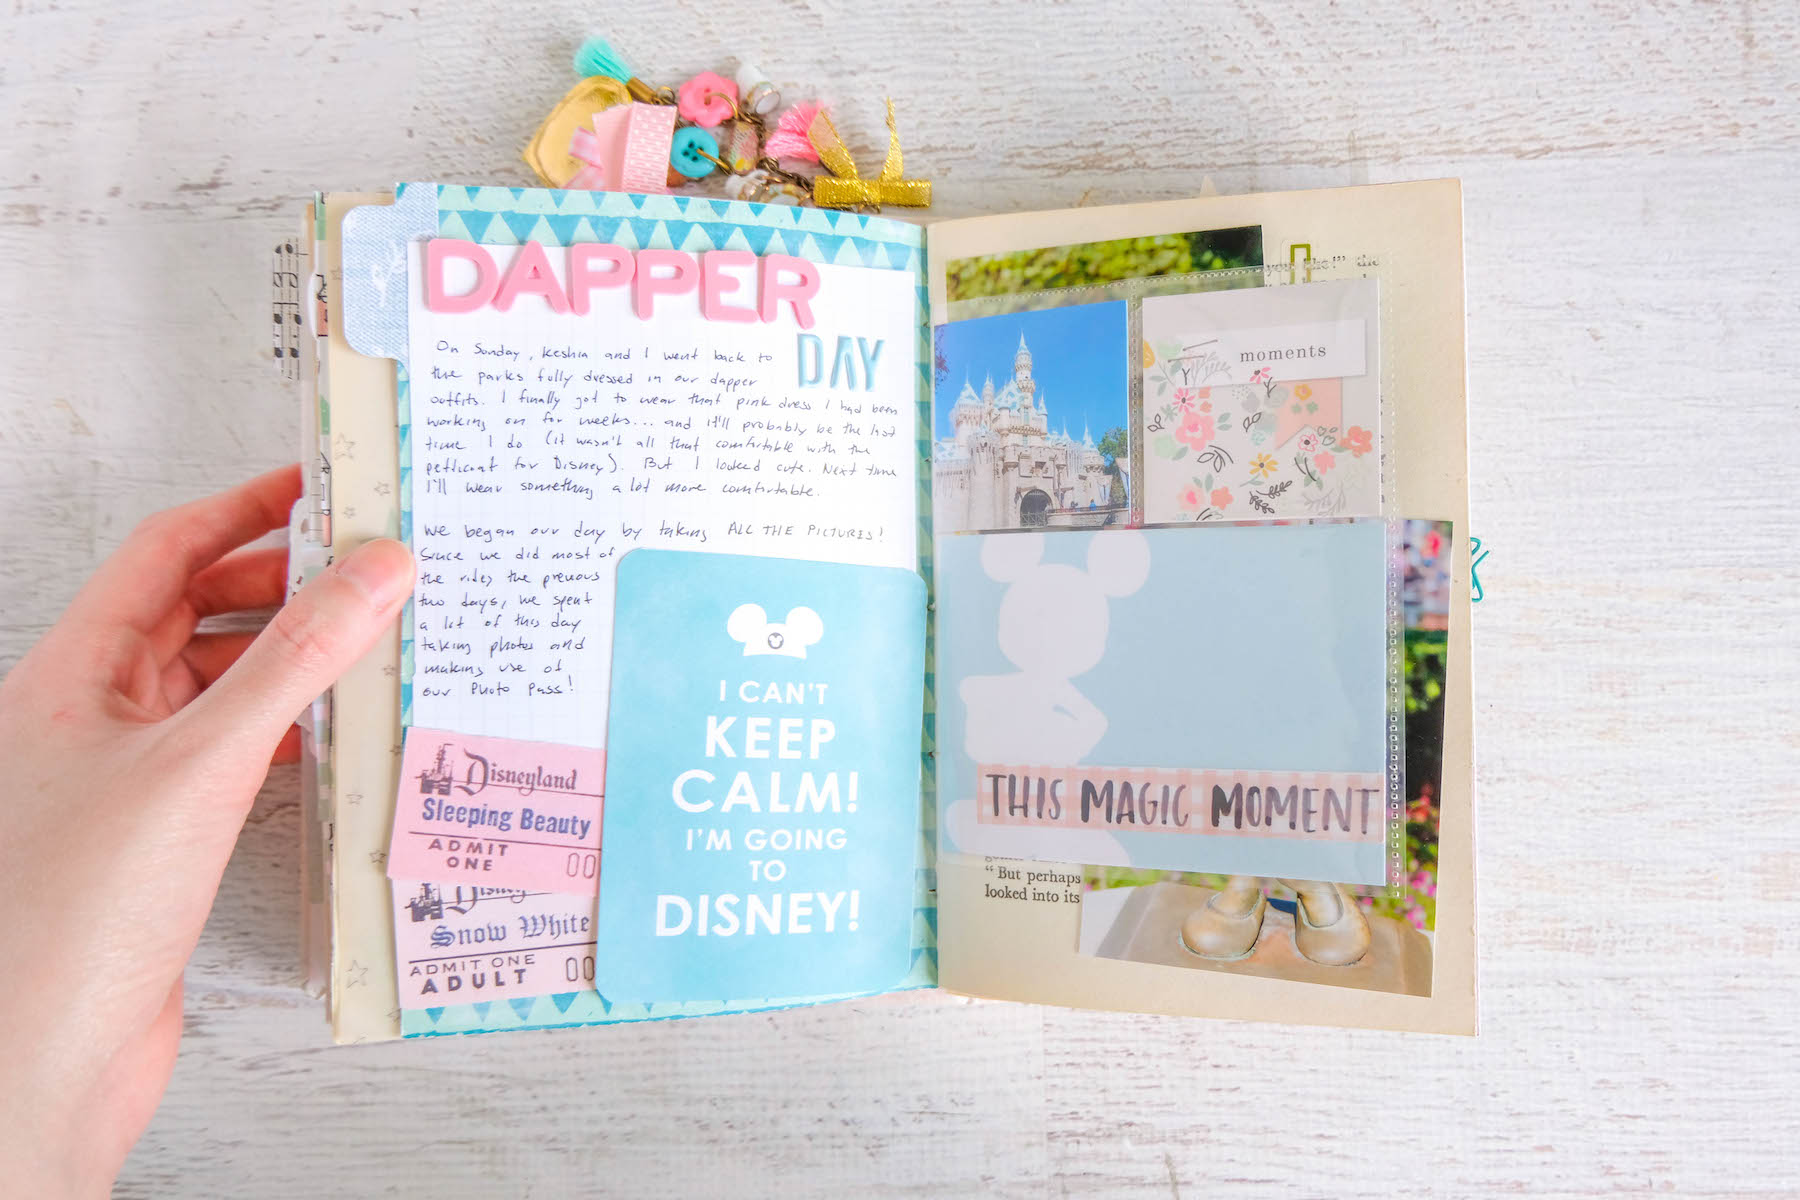 DAPPER
DAY
On Sunday, Keshia and I went back to
the parks fully dressed in our dapper
outfits. I finally got to wear that pink dress I had been
working on for weeks... and it'll probably be the last
time I do (it wasn't all that comfortable with the
petticoat for Disney). But I looked cute. Next time
I'll wear something a lot more comfortable.
We began our day by taking ALL THE PICTURES!
Since we did most of
the rides the previous
two days, we spent
a lot of this day
taking photos and
making use of
our Photo Pass!
Disneyland
Sleeping Beauty
ADMIT
ONE
00
Disney
Snow White
ADMIT ONE
ADULT
00
I CAN'T
KEEP
CALM!
I'M GOING
TO
DISNEY!
the
moments
THIS MAGIC MOMENT
"But perhaps
looked into its